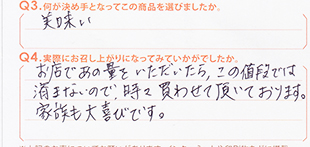 Q3.何が決め手となってこの商品を選びましたか。
美味い
Q4.実際にお召し上がりになってみていかがでしたか。
お店であの量をいただいたら、この値段では
済まないので、時々買わせて頂いております。
家族も大喜びです。